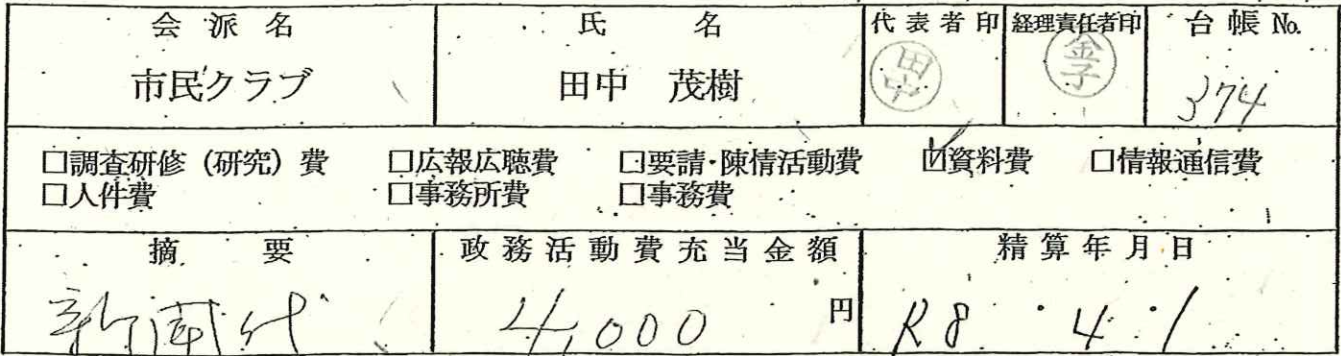 会派名 氏名 代表者印 経理責任者印 台帳No.
市民クラブ 田中 茂樹 田中 金子 374
□調査研修（研究）費 □広報広聴費 □要請・陳情活動費 ☑資料費 □情報通信費
□人件費 □事務所費 □事務費
摘要 政務活動費充当金額 精算年月日
新聞代 4,000 円 R8・4・1